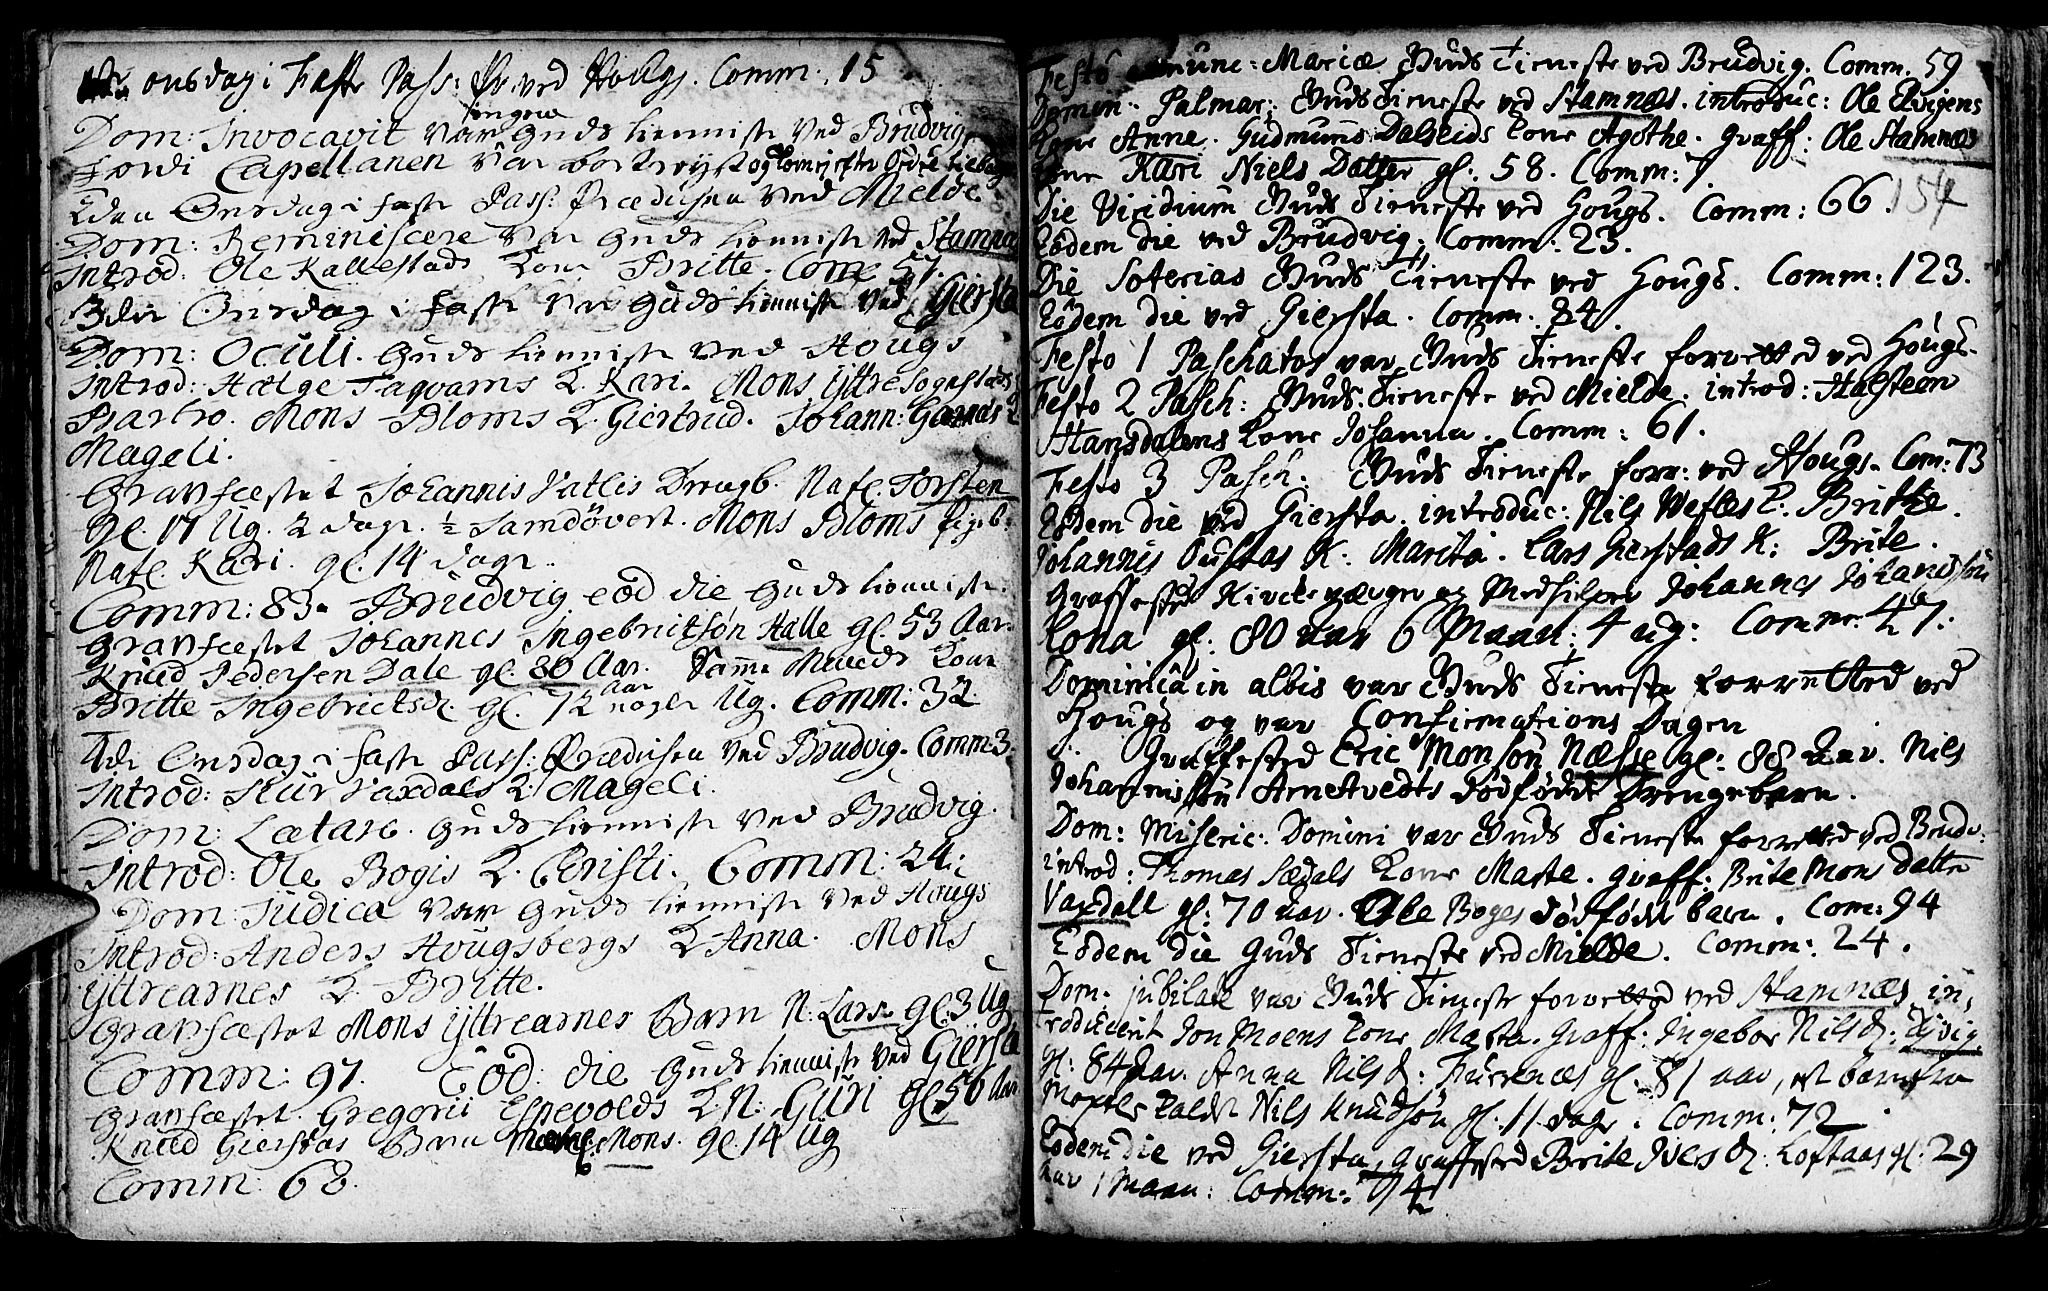 onsdag i Faste Pass: Pr. ved Hougs. Comm: 15
ingen
Dom: Invocavit var Guds tienniste ved Brudvig
Fordi Capellanen var bortreyst og kom ej efter Ordre tilbage
2den Onsdag i faste Pass: Prædicken ved Mielde
Dom: Reminiscere var Guds tienniste ved Stamnæs
Introd: Ole Kallestads Kone Britte. Com 57.
3die Onsdag i faste var Guds tienniste ved Giersta
Dom: Oculi. Guds tienniste ved Hougs
Introd: Hælge Fagvarms K. Kari. Mons Yttre
Mons Bloms K. Giertrud. Johann: Garnæs K
Mageli.
Gravfæstet Johannis Vatlis Drengb. Nafl. Torsten
gl. 17 Ug. 2 dage. ½ Mons Bloms Pigeb.
Nafl. Kari. gl. 14 dage.
Comm: 83. Brudvig eod die Guds tienniste.
Gravfæstet Johannes Ingebrictsøn Halle gl. 53 Aar.
Knud Pedersen Dale gl. 80 Aar. Samme Kone
Aar
Britte Ingebrictsd. gl. 72 nogle Ug. Comm: 32
4de Onsdag i faste Pass: Prædicken ved Brudvig. Comm 3
Introd: Siur Vaxdals K. Mageli.
Dom: Lætare. Guds tienniste ved Brudvig.
Introd: Ole Bogis K. Christi. Comm: 24.
Dom: Judica var Guds tienniste ved Hougs
Introd: Anders Hougsbergs K Anna. Mons
Yttrearnes K. Britte.
Gravfæstet Mons Yttrearnes Barn N. Lars gl. 3 Ug
Comm: 97. Eod: die Guds tienniste ved Giersta
Gravfæstet. Gregorii Espevolds K. N. Guri gl. 56 Aar
Knud Gierstas Barn Mons. gl. 14 Ug
Comm: 68.
Festo Mariæ Guds Tieneste ved Brudvig. Comm. 59
Domin: Palmar: Guds Tieneste ved Stamnæs. introduc: Ole Elvigens
Kone Anne. Gudmund Dalseids Kone Agothe. graff: Ole Stamnæs
Kone Kari Niels Datter gl: 58. Comm: 7
154
Die Viridium Guds Tieneste ved Hougs. Comm: 66.
Eodem die ved Brudvig. Comm: 23.
Die Soterias Guds Tieneste ved Hougs. Comm: 123.
Eodem die ved Giersta. Comm. 84.
Festo 1 Paschatos var Guds Tieneste forretted ved Hougs.
Festo 2 Pasch: Guds Tieneste ved Mielde. introd: Halsteen
Hansdalens Kone Johanna. Comm: 61.
Festo 3 Pasch. Guds Tieneste forr: ved Hougs. Com: 73
Eodem die ved Giersta. introduc: Nils K. Britte.
Johannis K. Marita. Lars Gierstads K: Brite.
Graffested Kirkeværger og Medhielper Johannes Johansøn
Lona gl: 80 aar 6 Maan: 4 ug: Comm: 47.
Dominica in albis var Guds Tieneste forretted ved
Hougs og var Confirmations Dagen
Graffested Eric Monsøn Næsse gl: 88 Aar. Nils
Johannissøn Arnetvedts dødfødde Drengebarn.
Dom: Miseric: Domini var Guds Tieneste forretted ved Brudv.
introd: Thomas Sædals Kone Marte. graff: Brite Mons datter
Vaxdall gl: 70 aar. Ole Boges dødfødde barn. Com: 94
Eodem die Guds Tieneste ved Mielde. Comm: 24.
Dom. jubilate var Guds Tieneste forretted ved Stamnæs. in,
troducerit Jon Moens Kone Marta. Graff: Ingebor Nilsd: Elvig
gl: 84 Aar. Anna Nilsd: gl: 81 aar, et barn fra
kaldt Nils Knudsøn gl. 11 dage. Comm: 72
Eodem die ved Giersta, graffested Brite Ivesd: Loftaas gl: 29
Aar 1 Maan: Comm: 94